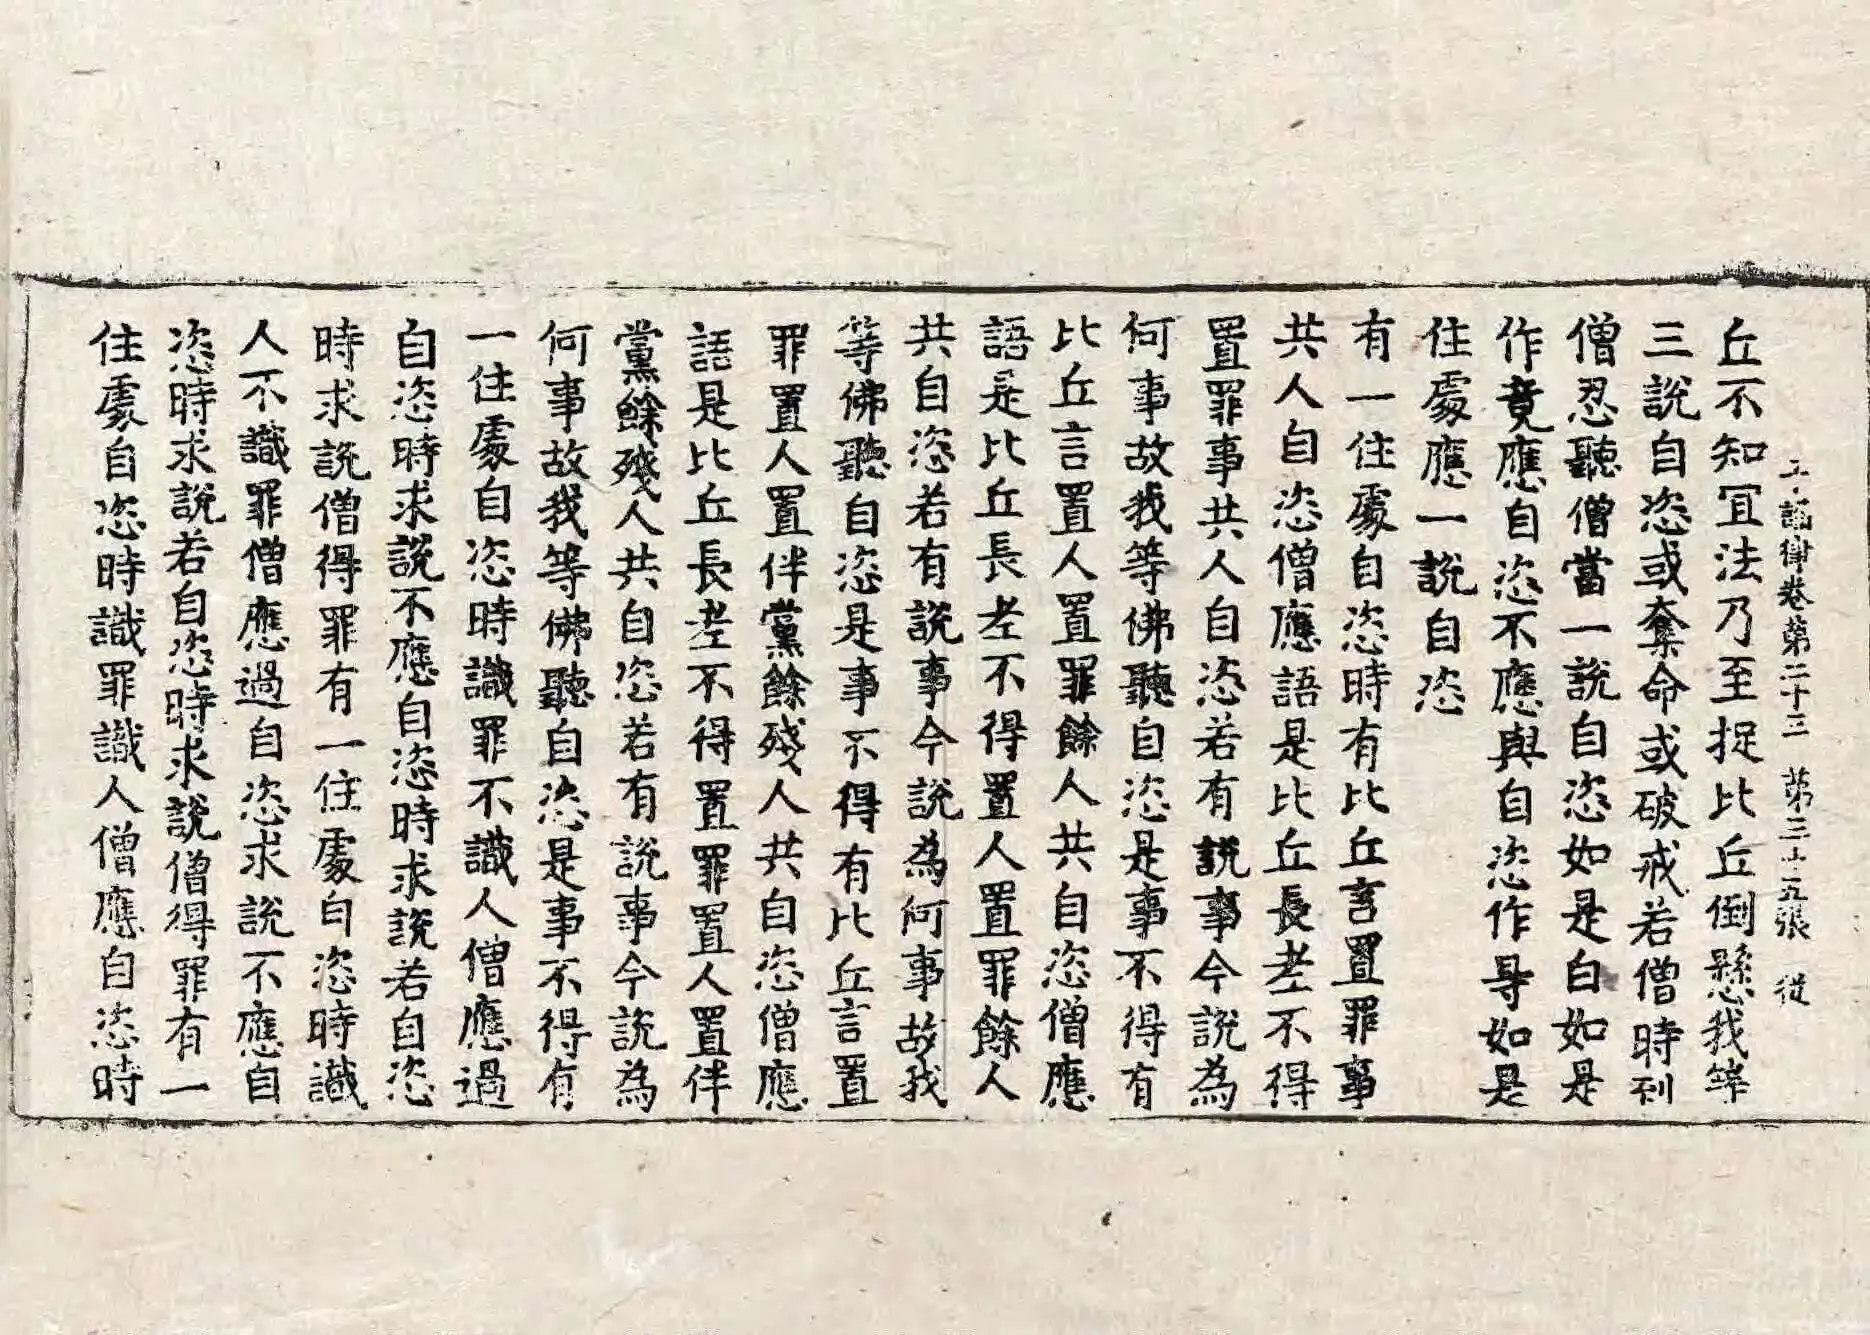 十誦律卷第二十三　第三十五張　從
丘不知冝法乃至捉比丘倒懸我等
三說自恣或奪命或破戒若僧時到
僧忍聽僧當一說自恣如是白如是
作竟應自恣不應與自恣作㝵如是
住處應一說自恣
有一住處自恣時有比丘言置罪事
共人自恣僧應語是比丘長老不得
置罪事共人自恣若有說事今說為
何事故我等佛聽自恣是事不得有
比丘言置人置罪餘人共自恣僧應
語是比丘長老不得置人置罪餘人
共自恣若有說事今說為何事故我
等佛聽自恣是事不得有比丘言置
罪置人置伴黨餘殘人共自恣僧應
語是比丘長老不得置罪置人置伴
黨餘殘人共自恣若有說事今說為
何事故我等佛聽自恣是事不得有
一住處自恣時識罪不識人僧應過
自恣時求說不應自恣時求說若自恣
時求說僧得罪有一住處自恣時識
人不識罪僧應過自恣求說不應自
恣時求說若自恣時求說僧得罪有一
住處自恣時識罪識人僧應自恣時